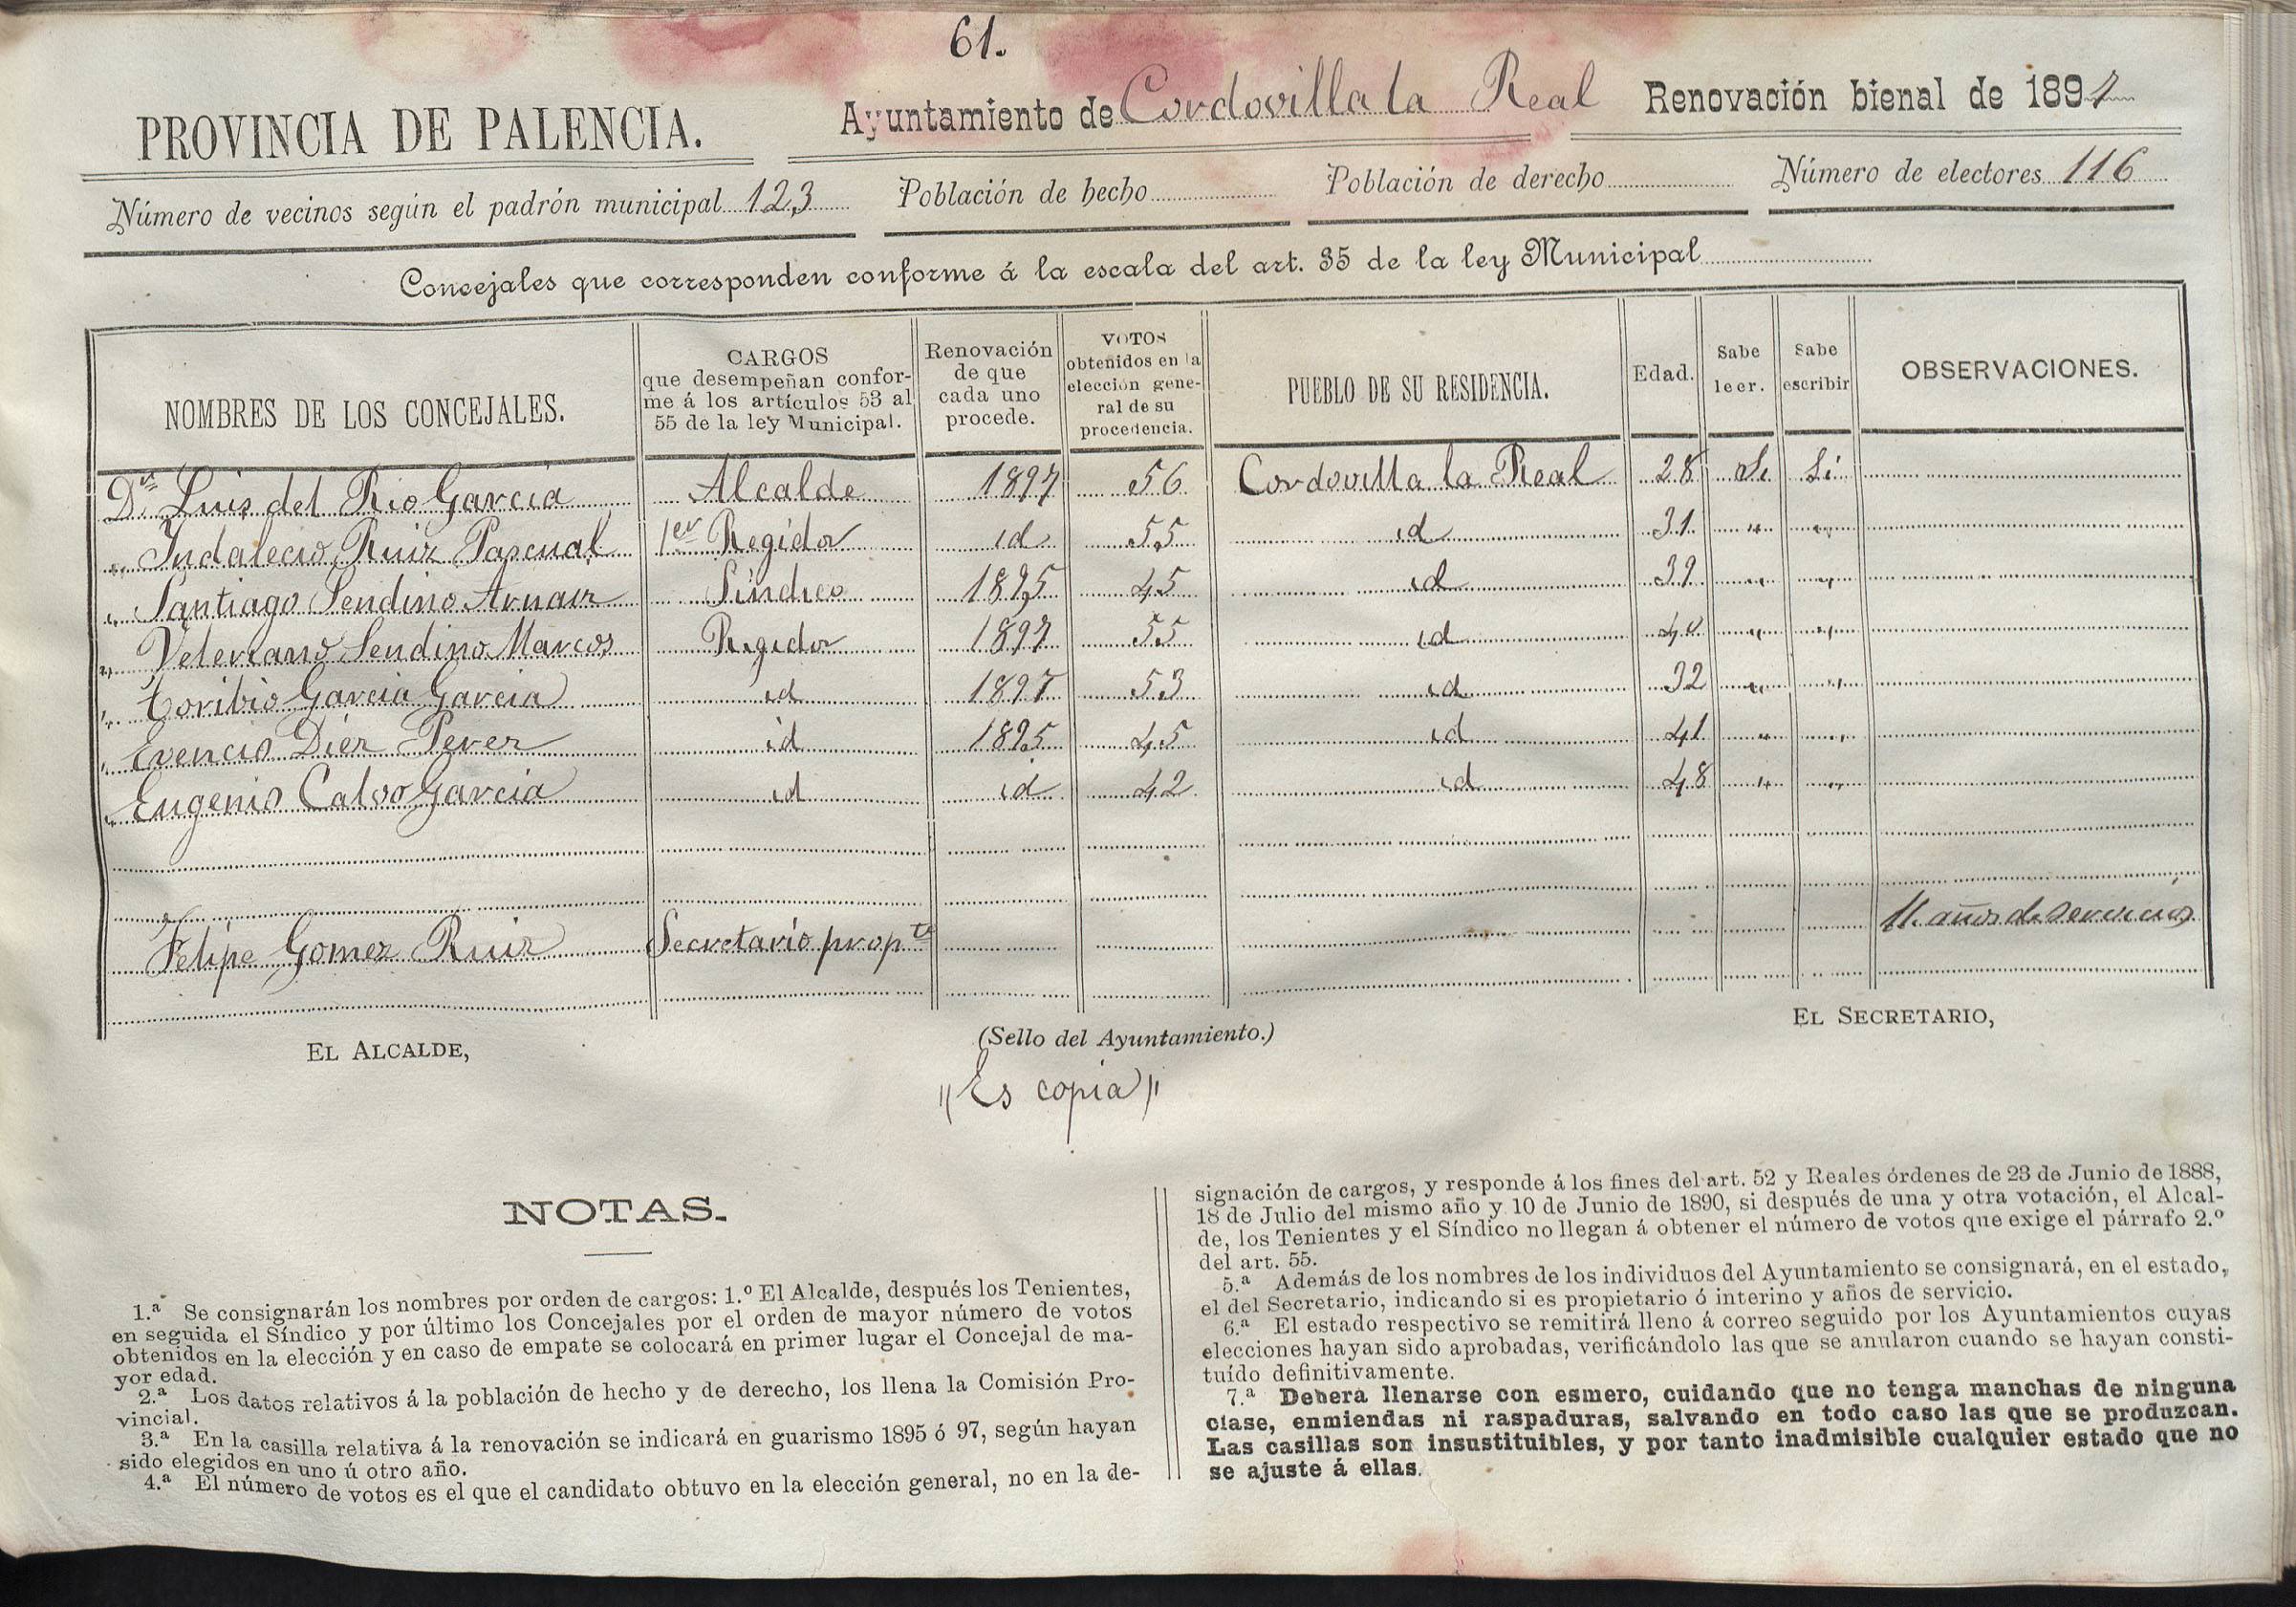 61.
PROVINCIA DE PALENCIA. Ayuntamiento de Cordovilla la Real Renovación bienal de 1897
Número de vecinos según el padrón municipal 123 Población de hecho Población de derecho Número de electores 116
Concejales que corresponden conforme á la escala del art. 35 de la ley Municipal
NOMBRES DE LOS CONCEJALES.
CARGOS
que desempeñan confor-
me á los artículos 53 al
55 de la ley Municipal.
Renovación
de que
cada uno
procede.
VOTOS
obtenidos en la
elección gene-
ral de su
procedencia.
PUEBLO DE SU RESIDENCIA.
Edad.
Sabe
leer.
Sabe
escribir
OBSERVACIONES.
Dn Luis del Rio Garcia Alcalde 1897 56 Cordovilla la Real 28 Si Si
" Indalecio Ruiz Pascual 1er Regidor id 55 id 31 " "
" Santiago Sendino Arnaiz Síndico 1895 45 id 39 " "
" Veteriano Sendino Marcos Regidor 1897 55 id 40 " "
" Toribio Garcia Garcia id 1897 53 id 32 " "
" Evencio Diez Perez id 1895 45 id 41 " "
" Eugenio Calvo Garcia id id 42 id 48 " "
Felipe Gomez Ruiz Secretario propto 11 años de servicios
EL ALCALDE,
(Sello del Ayuntamiento.)
EL SECRETARIO,
"Es copia"
NOTAS.
1.ª Se consignarán los nombres por orden de cargos: 1.º El Alcalde, después los Tenientes,
en seguida el Síndico y por último los Concejales por el orden de mayor número de votos
obtenidos en la elección y en caso de empate se colocará en primer lugar el Concejal de ma-
yor edad.
2.ª Los datos relativos á la población de hecho y de derecho, los llena la Comisión Pro-
vincial.
3.ª En la casilla relativa á la renovación se indicará en guarismo 1895 ó 97, según hayan
sido elegidos en uno ú otro año.
4.ª El número de votos es el que el candidato obtuvo en la elección general, no en la de-
signación de cargos, y responde á los fines del art. 52 y Reales órdenes de 23 de Junio de 1888,
18 de Julio del mismo año y 10 de Junio de 1890, si después de una y otra votación, el Alcal-
de, los Tenientes y el Síndico no llegan á obtener el número de votos que exige el párrafo 2.º
del art. 55.
5.ª Además de los nombres de los individuos del Ayuntamiento se consignará, en el estado,
el del Secretario, indicando si es propietario ó interino y años de servicio.
6.ª El estado respectivo se remitirá lleno á correo seguido por los Ayuntamientos cuyas
elecciones hayan sido aprobadas, verificándolo las que se anularon cuando se hayan consti-
tuído definitivamente.
7.ª Deberá llenarse con esmero, cuidando que no tenga manchas de ninguna
clase, enmiendas ni raspaduras, salvando en todo caso las que se produzcan.
Las casillas son insustituibles, y por tanto inadmisible cualquier estado que no
se ajuste á ellas.